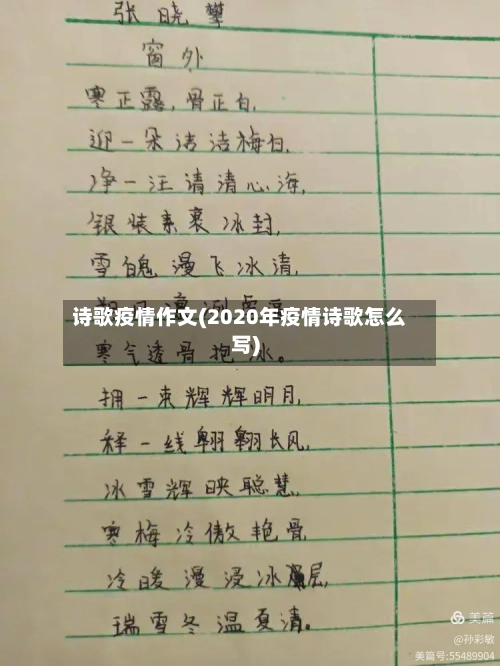 张晓攀
窗外
寒正露,骨正白,
迎一朵洁洁梅白,
净一汪清清心海,
银装素裹冰封,
雪魄漫飞冰清,
诗歌疫情作文(2020年疫情诗歌怎么
写)
寒气透骨抱冰。
拥一束辉辉明月,
释一线翱翱长风,
冰雪辉映聪慧,
寒梅冷傲艳骨,
冷暖漫浸冰层,
瑞雪冬温夏清。
美篇
@孙彩敏
美篇号:55489904